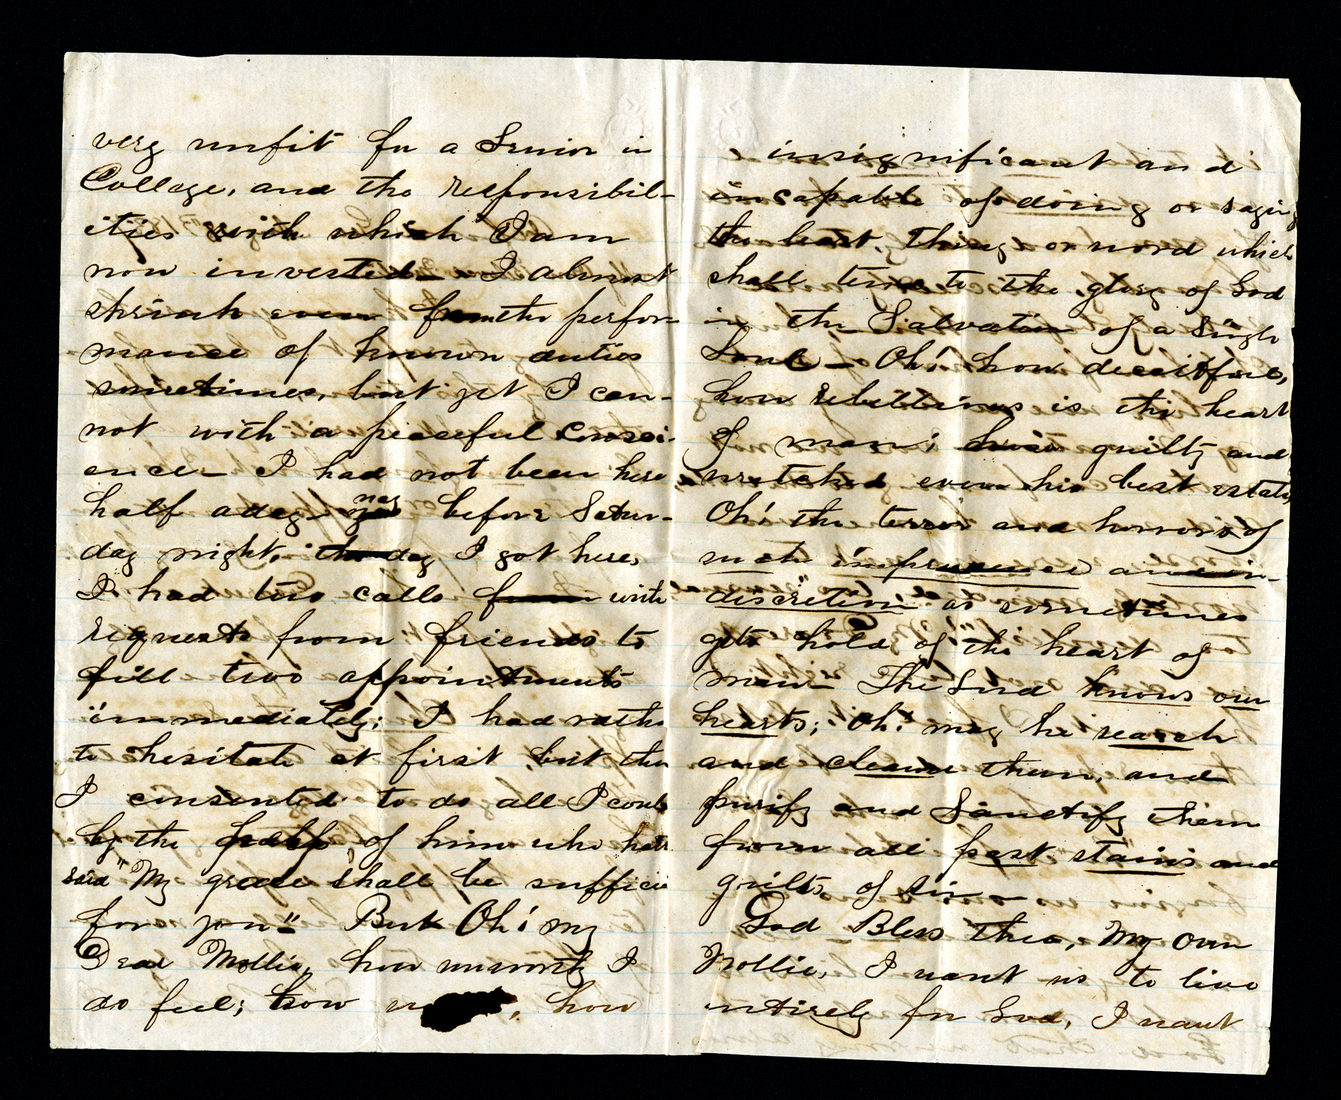 very unfit for a Senior in
College, and the responsibil-
ities with which I am
now invested - I almost
shrink even from the perfor-
mance of known duties
sometimes, but yet I can-
not with a peaceful consci-
ence - I had not been here
half a day nay before Satur-
day night, the day I got here,
I had two calls from with
requests from friends to
fill two appointments
immediately; I had rather
to hesitate at first, but then
I consented to do all I could
by the help of him who hath
said "My grace shall be sufficie
for you" But Oh! my
Dear Mollie, how unworthy I
do feel; how , how
insignificant and
incapable of doing or saying
the least thing or word which
shall tend to the glory of God
in the Salvation of a single
Soul - Oh! how deceitful,
how rebellious is the heart
of man; how guilty and
wretched even his best estate,
Oh! the terror and horrors of
such imprudence and in-
discretion as sometimes
gets hold of the heart of
man - The Lord knows our
hearts; Oh! may he search
and cleanse them, and
purify and Sanctify them
from all past stains and
guilts of sin
God Bless thee, My own
Mollie, I want us to live
entirely for God, I want